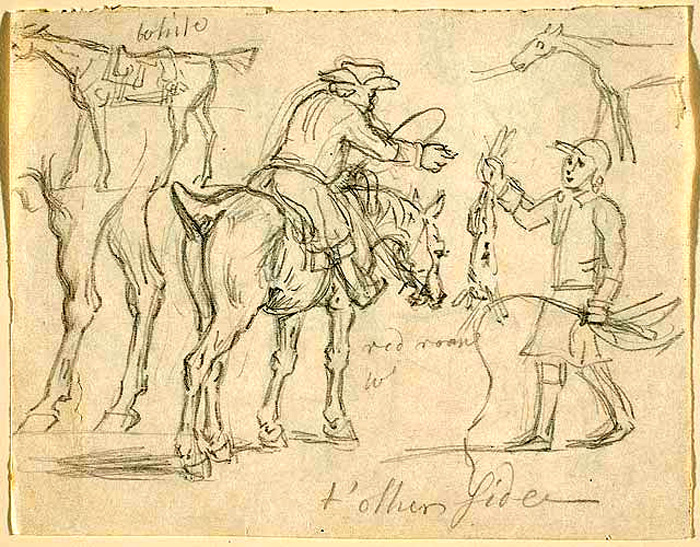 white
red roan
w
t'other side